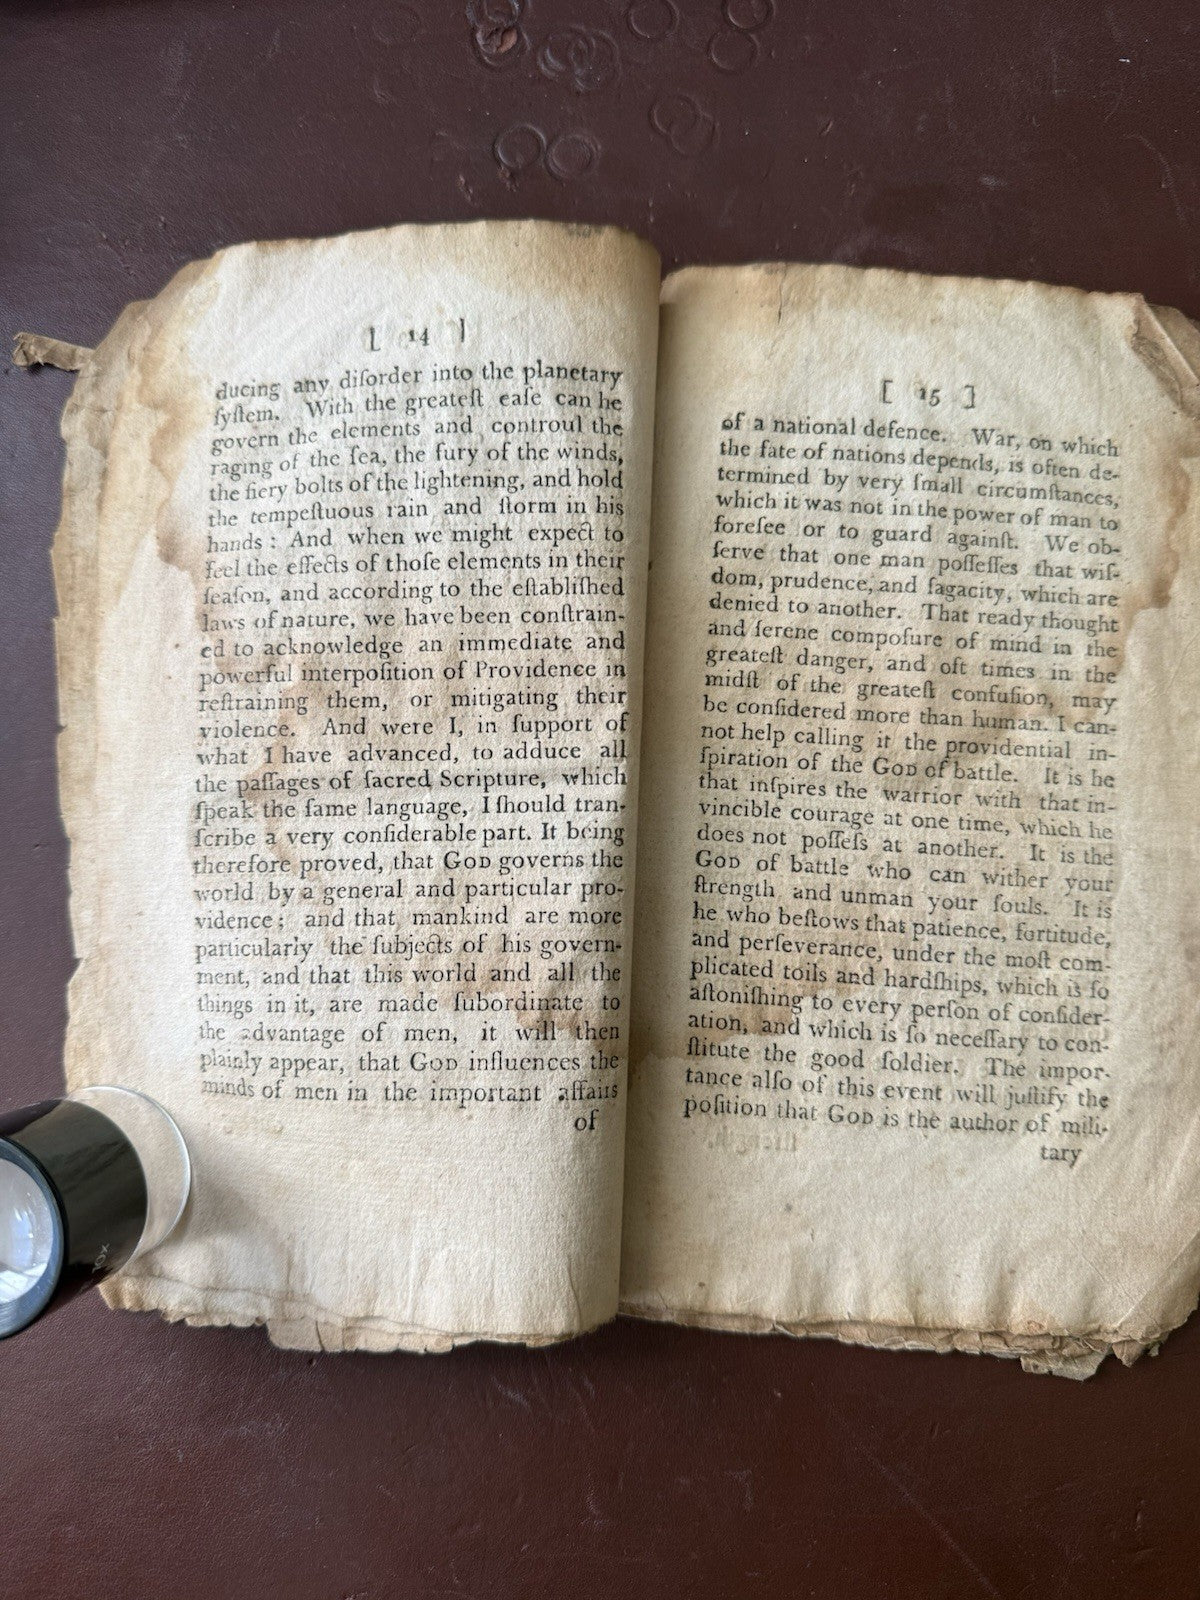 [ 14 ]
ducing any diſorder into the planetary
ſyſtem. With the greateſt eaſe can he
govern the elements and controul the
raging of the ſea, the fury of the winds,
the fiery bolts of the lightening, and hold
the tempeſtuous rain and ſtorm in his
hands: And when we might expect to
feel the effects of thoſe elements in their
ſeaſon, and according to the eſtabliſhed
laws of nature, we have been conſtrain-
ed to acknowledge an immediate and
powerful interpoſition of Providence in
reſtraining them, or mitigating their
violence. And were I, in ſupport of
what I have advanced, to adduce all
the paſſages of ſacred Scripture, which
ſpeak the ſame language, I ſhould tran-
ſcribe a very conſiderable part. It being
therefore proved, that GOD governs the
world by a general and particular pro-
vidence; and that mankind are more
particularly the ſubjects of his govern-
ment, and that this world and all the
things in it, are made ſubordinate to
the advantage of men, it will then
plainly appear, that GOD influences the
minds of men in the important affairs
of
[ 15 ]
of a national defence. War, on which
the fate of nations depends, is often de-
termined by very ſmall circumſtances,
which it was not in the power of man to
foreſee or to guard againſt. We ob-
ſerve that one man poſſeſſes that wiſ-
dom, prudence, and ſagacity, which are
denied to another. That ready thought
and ſerene compoſure of mind in the
greateſt danger, and oft times in the
midſt of the greateſt confuſion, may
be conſidered more than human. I can-
not help calling it the providential in-
ſpiration of the GOD of battle. It is he
that inſpires the warrior with that in-
vincible courage at one time, which he
does not poſſeſs at another. It is the
GOD of battle who can wither your
ſtrength and unman your ſouls. It is
he who beſtows that patience, fortitude,
and perſeverance, under the moſt com-
plicated toils and hardſhips, which is ſo
aſtoniſhing to every perſon of conſider-
ation, and which is ſo neceſſary to con-
ſtitute the good ſoldier. The impor-
tance alſo of this event will juſtify the
poſition that GOD is the author of mili-
tary
10X